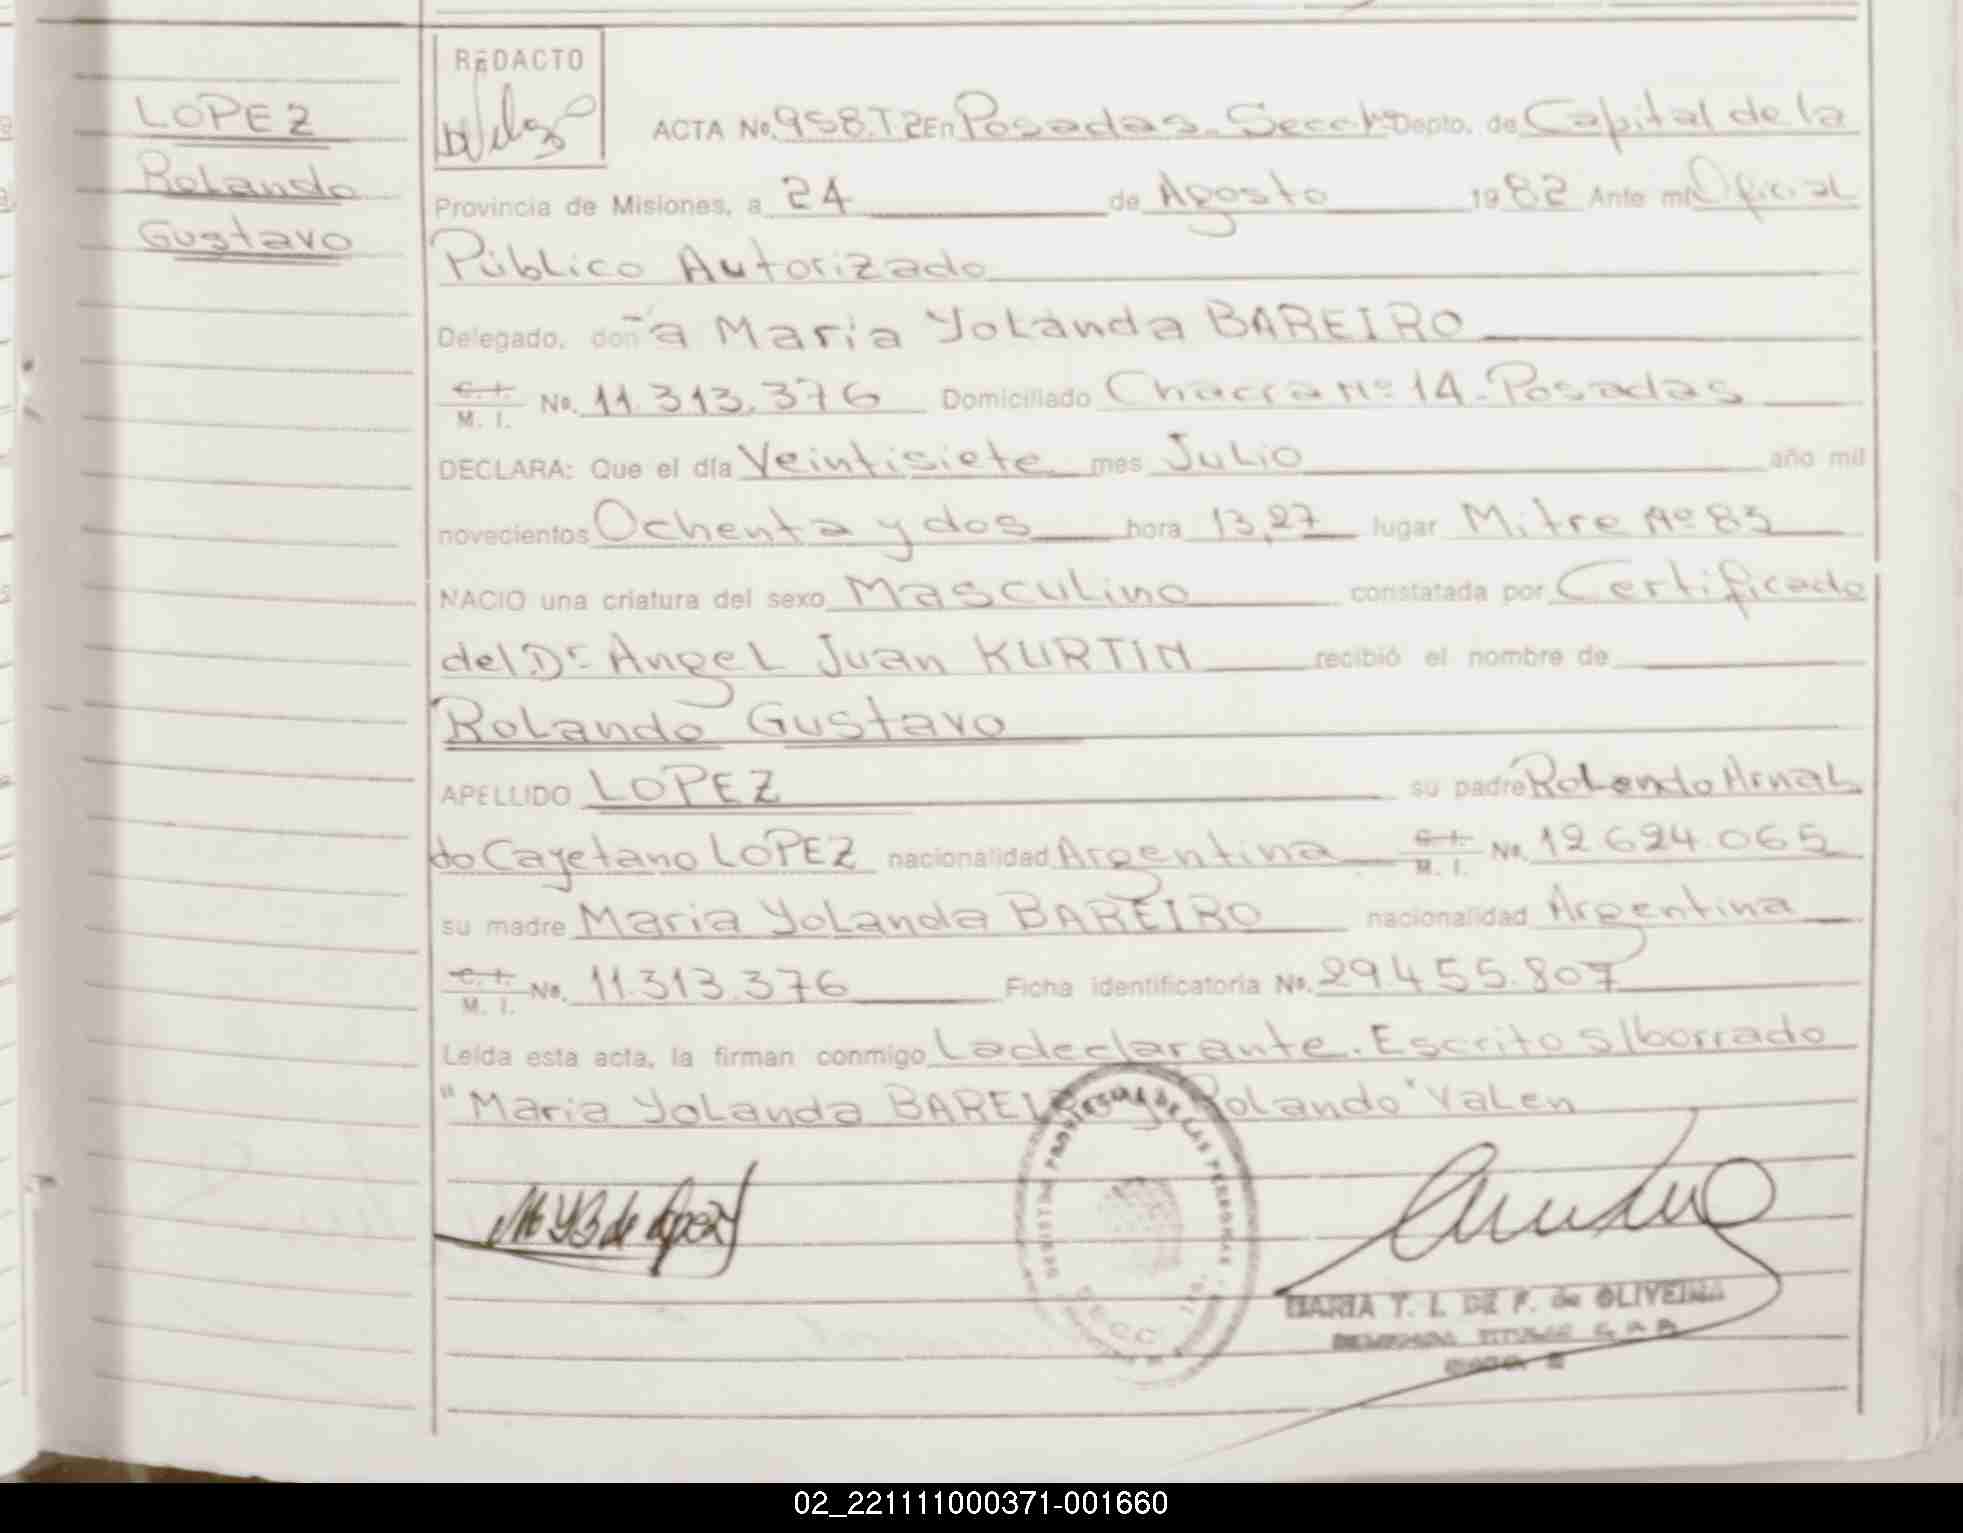 LOPEZ
Rolando
Gustavo
REDACTO
ACTA No. 958.T2 En Posadas. Secc 1ª Depto. de Capital de la
Provincia de Misiones, a 24 de Agosto 1982 Ante mí Oficial
Público Autorizado
Delegado, don~a Maria Yolanda BAREIRO
C. I. M. I. No. 11.313.376 Domiciliado Chacra Nº 14 - Posadas
DECLARA: Que el día Veintisiete mes Julio año mil
novecientos Ochenta y dos hora 13,27 lugar Mitre Nº 83
NACIO una criatura del sexo Masculino constatada por Certificado
del Dr. Angel Juan KURTIN recibió el nombre de
Rolando Gustavo
APELLIDO LOPEZ su padre Rolando Arnal
do Cayetano LOPEZ nacionalidad Argentina C. I. M. I. No. 12.624.065
su madre Maria Yolanda BAREIRO nacionalidad Argentina
C. I. M. I. No. 11.313.376 Ficha identificatoria No. 29.455.807
Leída esta acta, la firman conmigo La declarante. Escrito s/borrado
"Maria Yolanda BAREIRO y Rolando" Valen
M Y B de Lopez
REGISTRO PROVINCIAL DE LAS PERSONAS
SECC. 1ra.
MARIA T. L. DE F. de OLIVEIRA
02_221111000371-001660